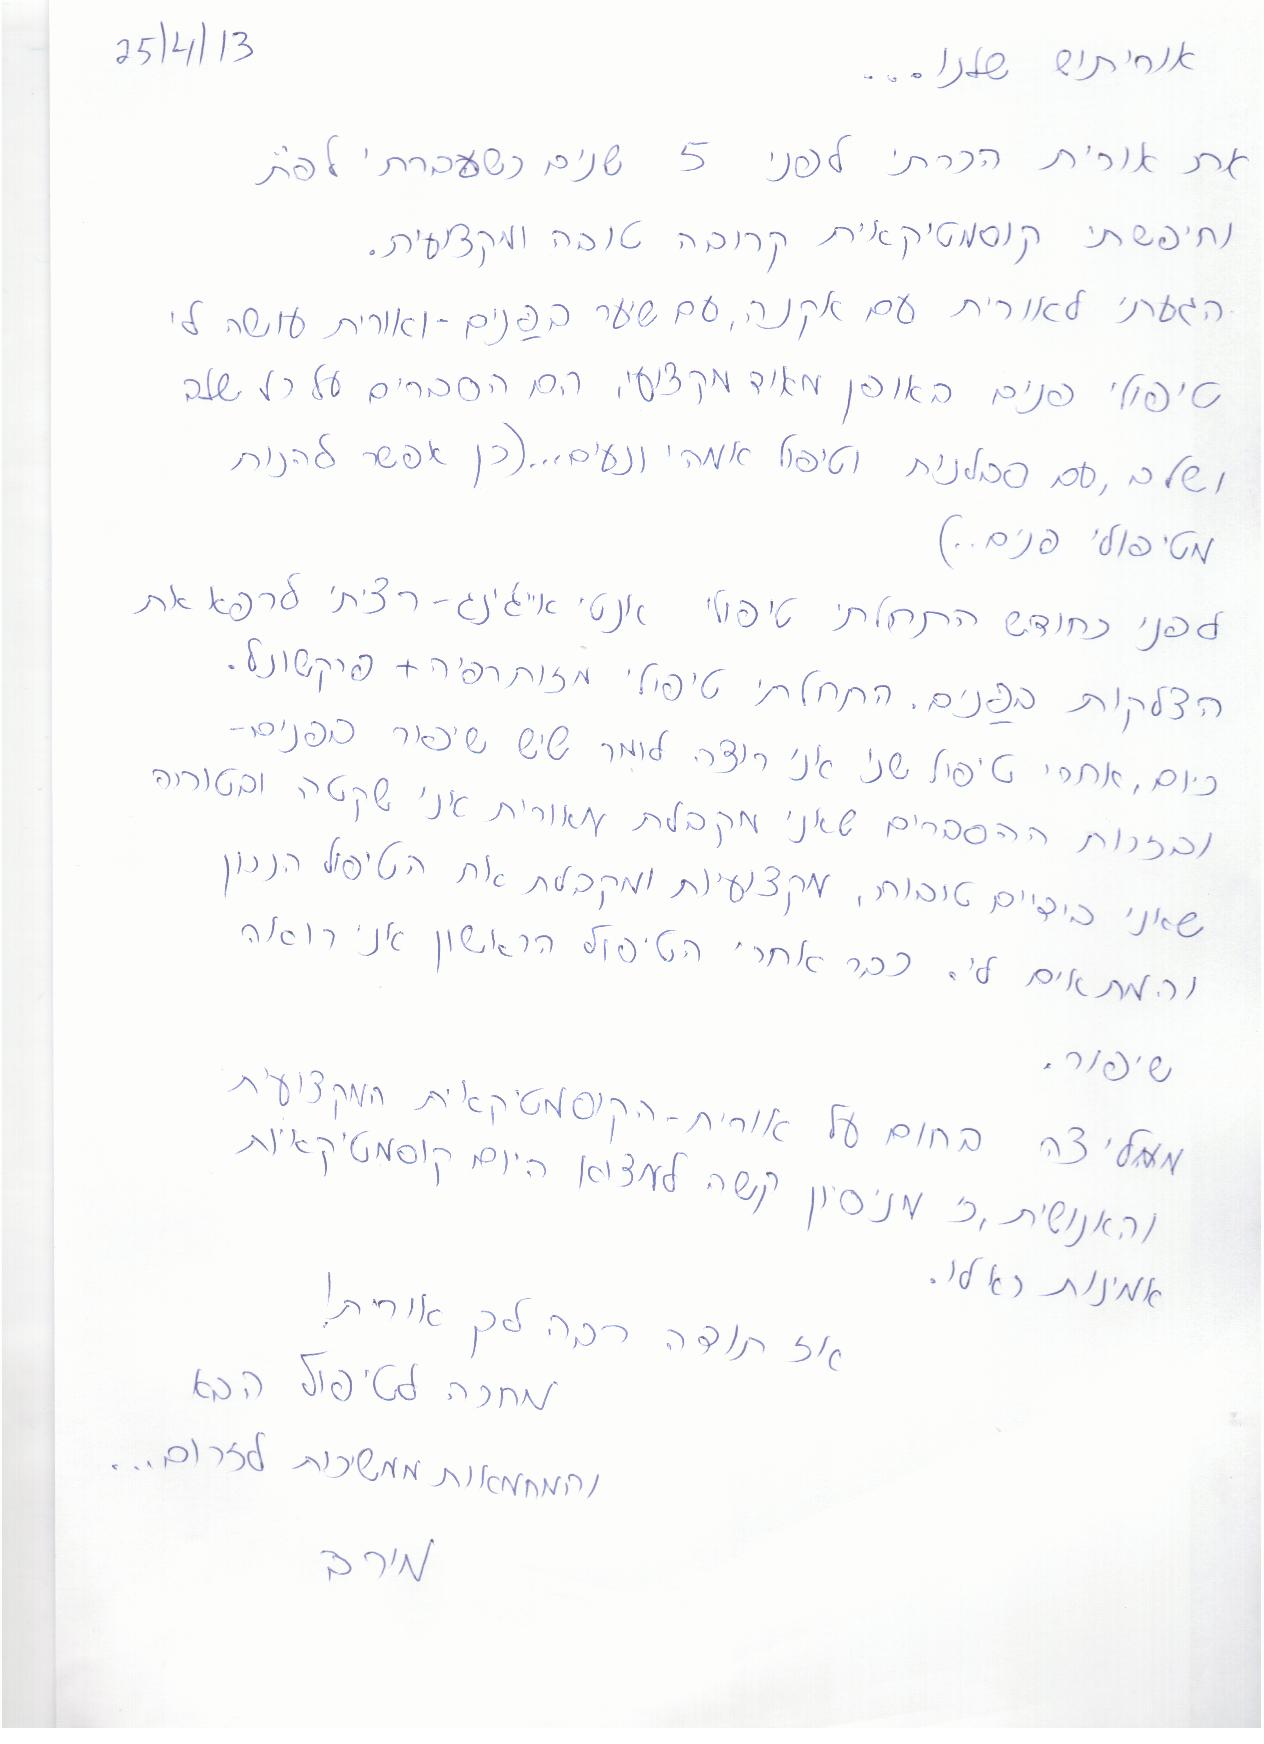 25/4/13
אוריתוש שלנו...
את אורית הכרתי לפני 5 שנים כשעברתי לפ"ת
וחיפשתי קוסמטיקאית קרובה טובה ומקצועית.
הגעתי לאורית עם אקנה, עם שיער בפנים - ואורית עושה לי
טיפולי פנים באופן מאוד מקצועי, הם הסברים על כל שלב
ושלב, עם סבלנות וטיפול אמהי ונעים...(כן אפשר להנות
מטיפולי פנים..)
לפני כחודש התחלתי טיפולי אנטי אייג'ינג - רציתי לרפא את
הצלקות בפנים. התחלתי טיפולי מזותרפיה + פרקשונל.
כיום, אחרי טיפול שני אני רוצה לומר שיש שיפור בפנים -
ובזכות ההסברים שאני מקבלת מאורית אני שקטה ובטוחה
שאני בידיים טובות, מקצועיות ומקבלת את הטיפול הנכון
והמתאים לי. כבר אחרי הטיפול הראשון אני רואה
שיפור.
ממליצה בחום על אורית - הקוסמטיקאית המקצועית
והאנושית, כי מניסיון קשה למצוא היום קוסמטיקאיות
אמינות כאלו.
אז תודה רבה לך אורית!
מחכה לטיפול הבא
והמחמאות ממשיכות לזרום...
מירב